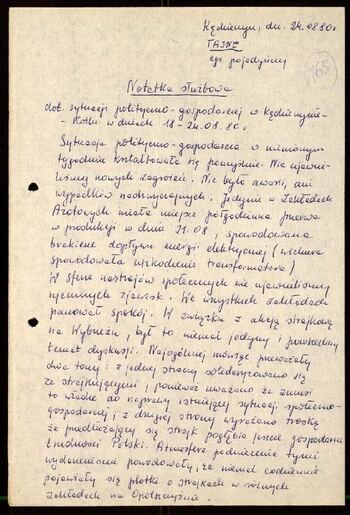 Kędzierzyn, dn. 24.08.80r
TAJNE
egz. pojedynczy
165
Notatka służbowa
dot. sytuacji polityczno-gospodarczej w Kędzierzynie-
- Koźlu w dniach 18-24.08.80r
Sytuacja polityczno-gospodarcza w minionym
tygodniu kształtowała się pomyślnie. Nie ujawni-
liśmy nowych zagrożeń. Nie było awarii, ani
wypadków nadzwyczajnych. Jedynie w Zakładach
Azotowych miała miejsce półgodzinna przerwa
w produkcji w dniu 21.08, spowodowana
brakiem dopływu energii elektrycznej (wichura
spowodowała uszkodzenie transformatora)
W sferze nastrojów społecznych nie ujawniliśmy
ujemnych zjawisk. We wszystkich zakładach
panował spokój. W związku z akcją strajkową
na Wybrzeżu, był to niemal jedyny i powszechny
temat dyskusji. Najogólniej mówiąc przeważały
dwa tony: z jednej strony solidaryzowano się
ze strajkującymi, ponieważ uważano że zmusi
to władze do naprawy istniejącej sytuacji społeczno-
gospodarczej, i z drugiej strony wyrażano troskę
że przedłużający się strajk pogłębia gospodarcze
trudności Polski. Atmosferę podniecenia tymi
wydarzeniami powodowały, że niemal codziennie
pojawiały się plotki o strajkach w różnych
zakładach na Opolszczyźnie.